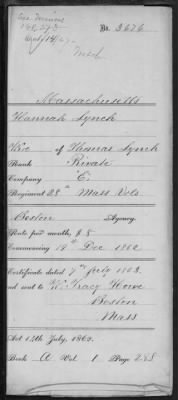 No. 3676
Massachusetts
Hannah Lynch
Wid. of Thomas Lynch
Rank Private
Company "E"
Regiment 28th Mass Vols
Boston Agency.
Rate per month, $ 8
Commencing 13th Dec 1862
Certificate dated 7th July 1863.
and sent to W. Tracy Howe
Boston
Mass
Act 14th July, 1862.
Book A Vol. 1 Page 288